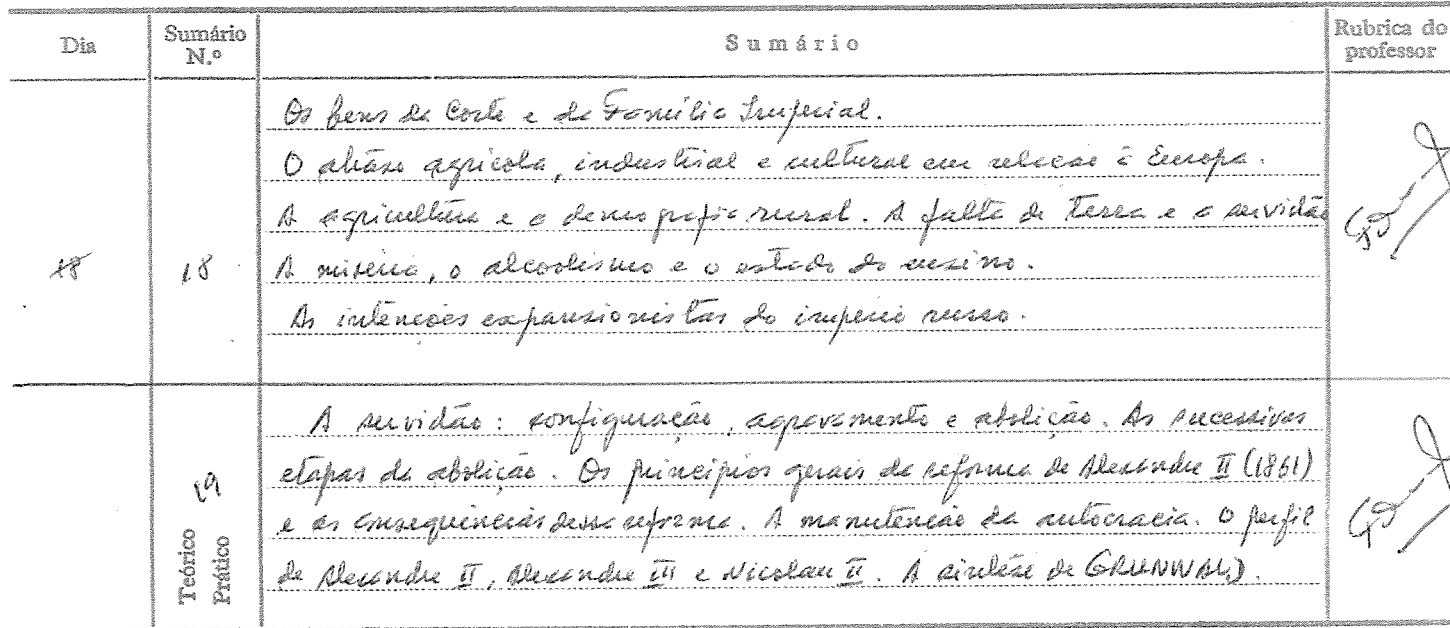 Dia
Sumário N.º
Sumário
Rubrica do professor
18
18
Os bens da Corte e da Família Imperial.
O atraso agrícola, industrial e cultural em relação à Europa.
A agricultura e a demografia rural. A falta de Terra e a servidão
A miséria, o alcoolismo e o estado do ensino.
As intenções expansionistas do império russo.
Teórico
Prático
19
A servidão: configuração, agravamento e abolição. As sucessivas
etapas da abolição. Os princípios gerais da reforma de Alexandre II (1861)
e as consequências dessa reforma. A manutenção da autocracia. O perfil
de Alexandre II, Alexandre III e Nicolau II. A síntese de GRUNWALD.